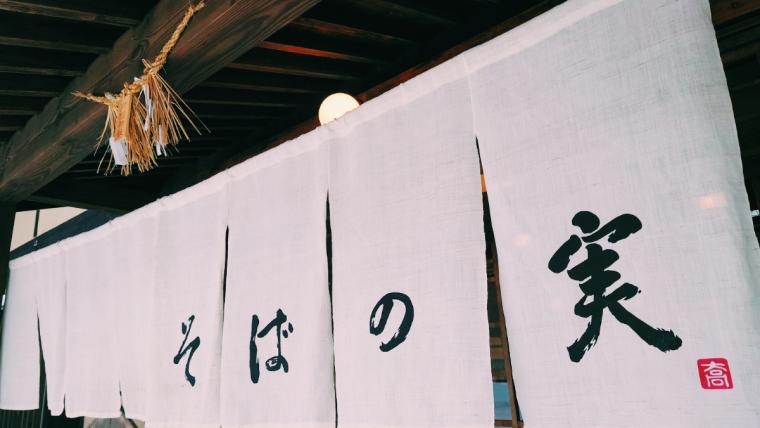 そばの実
高